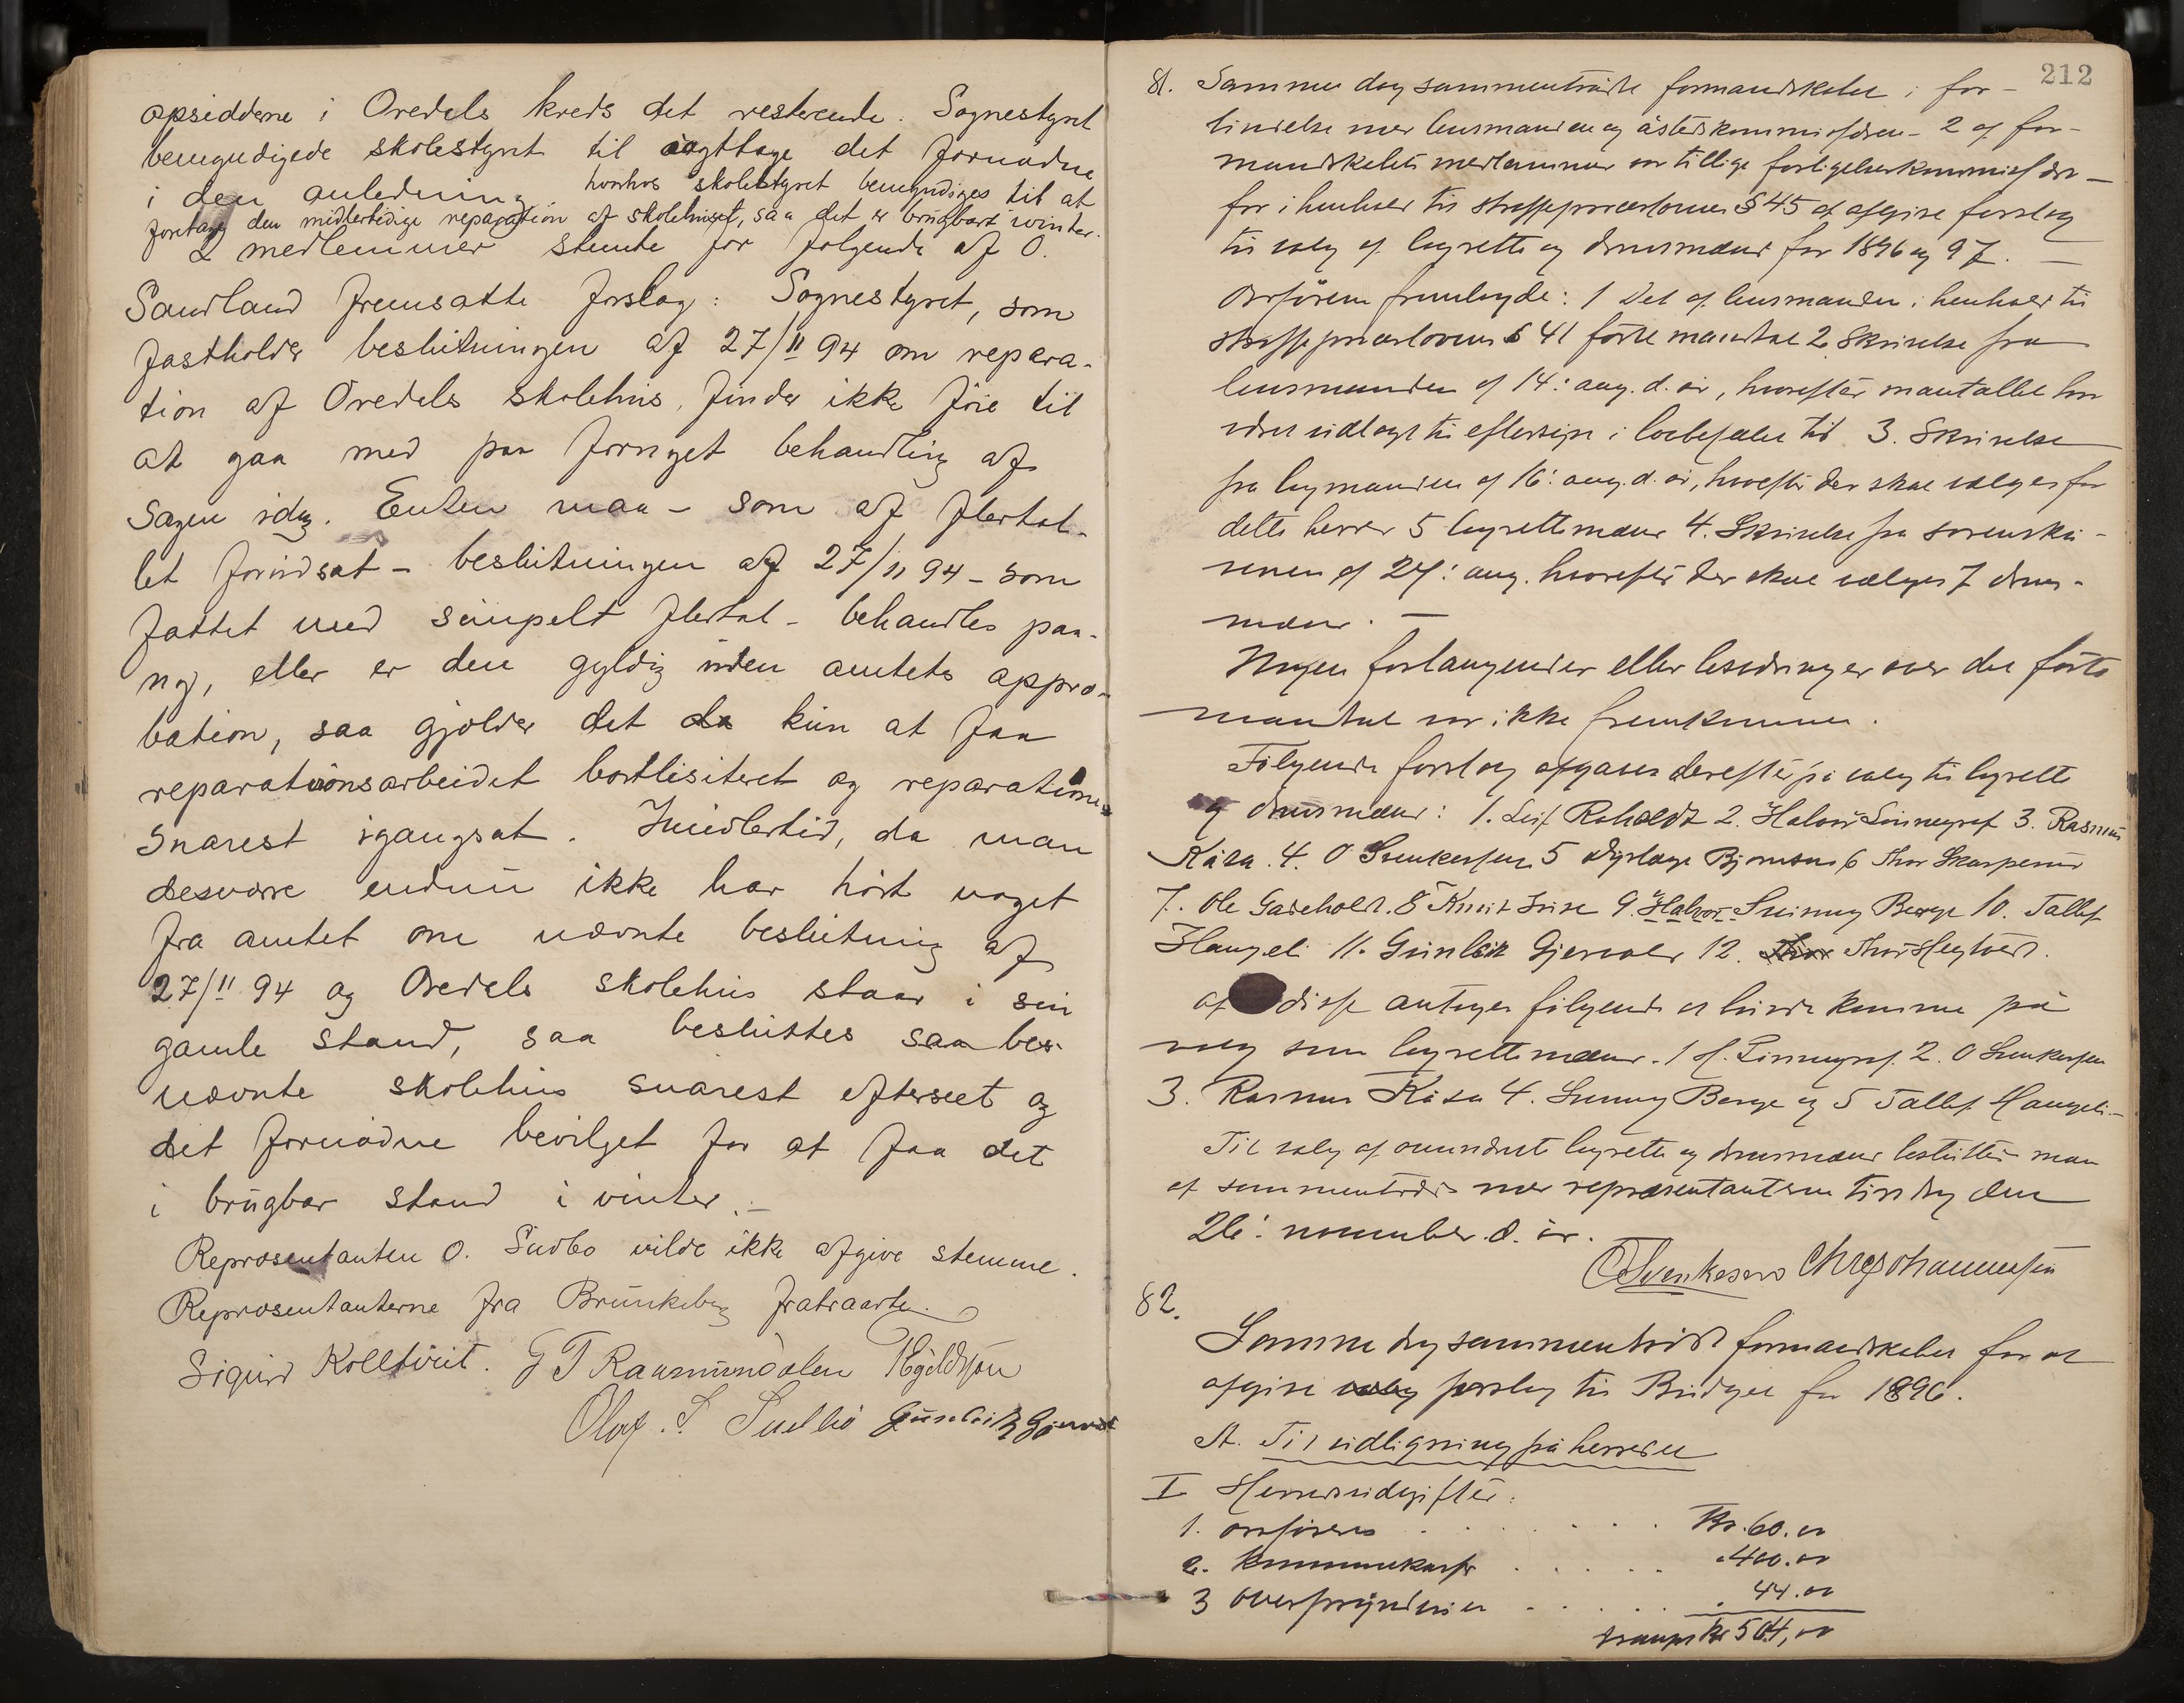 opsidderne i Øvedels kreds det resterende. Sognestyret
bemyndigede skolestyret til iagttage det fornødne
i den anledning hvorhos skolestyret bemyndiges til at
foretage den midlertidige reparation af skolehuset, saa det er brugbart i vinter.
2 medlemmer stemte for følgende af O.
Sandland fremsatte forslag: Sognestyret, som
fastholder beslutningen af 27/11 94 om repara-
tion af Øvedels skolehus, finder ikke föie til
at gaa med paa fornyet behandling af
sagen idag. Enten maa – som af flertal-
let forudsat – beslutningen af 27/11 94 – som
fattet med simpelt flertal – behandles paa-
ny, eller er den gyldig uden amtets appro-
bation, saa gjælder det da kun at faa
reparationsarbeidet bortlisiteret og reparationen
snarest igangsat. Imidlertid, da man
desværre endnu ikke har hört noget
fra amtet om nævnte beslutning af
27/11 94 og Øvedels skolehus staar i sin
gamle stand, saa besluttes saa be-
nævnte skolehus snarest efterseet og
det fornødne bevilget for at faa det
i brugbar stand i vinter. –
Repræsentanten O. Sudbø vilde ikke afgive stemme.
Repræsentanterne fra Brunkeberg fratraadte.
Sigurd Kolltveit. G T Raamunddalen
Olaf. S.
212
81. Samme dag sammentraadte formandskabet i for-
bindelse med lensmanden og åstedskommissæren – 2 af for-
mandskabets medlemmer var tillige forligelseskommissærer –
for i henhold til straffeprocesloven § 45 at afgive forslag
til valg af lagrette og domsmænd for 1896 og 97. –
Ordføreren fremlagde: 1 Det af lensmanden i henhold til
straffeproceslovens § 41 førte mandtal 2 Skrivelse fra
lensmanden af 14: aug. d. år, hvorefter mantallet har
været udlagt til eftersyn i lovbefalet tid 3. Skrivelse
fra lagmanden af 16: aug. d. år, hvorefter der skal vælges for
dette herred 5 lagrettemænd 4. Skrivelse fra sorenskri-
veren af 24: aug. hvorefter der skal vælges 7 doms-
mænd. –
Nogen forlangender eller besværinger over det førte
mandtal var ikke fremkommen.
Følgende forslag afgaves derefter på valg til lagrette
og domsmænd: 1. Leif Roholdt 2. Halvor Linnegref 3. Rasmus
Kåsa. 4. O Svenkesen 5 Bjørnson 6 Thor
7. Ole Gaseholt. 8 Knut 9. Halvor Sveinung Berge 10. Tallef
Haugeli 11. Gunleik Gjervoll 12. Thor
af disse antages følgende at burde komme på
valg som lagrettemænd. 1 H. Linnegref. 2. O Svenkesen
3. Rasmus Kåsa 4. Sveinung Berge og 5 Tallef Haugeli –
Til valg af lagrette og domsmænd besluttes man
at sammentræde med repræsentanterne tirsdag den
26: november d. år.
O Svenkesen Chr Johannessen
82.
Samme dag sammentrådte formandskabet for at
afgive forslag til Budget for 1896.
A. Til udligning på herredet
I Herredsudgifter:
1. ordføreren . . . . Kr. 60.00
2. Kommunekasse . . . . . 400.00
3 overformynderiet . . . . . 44.00
Kr 504,00